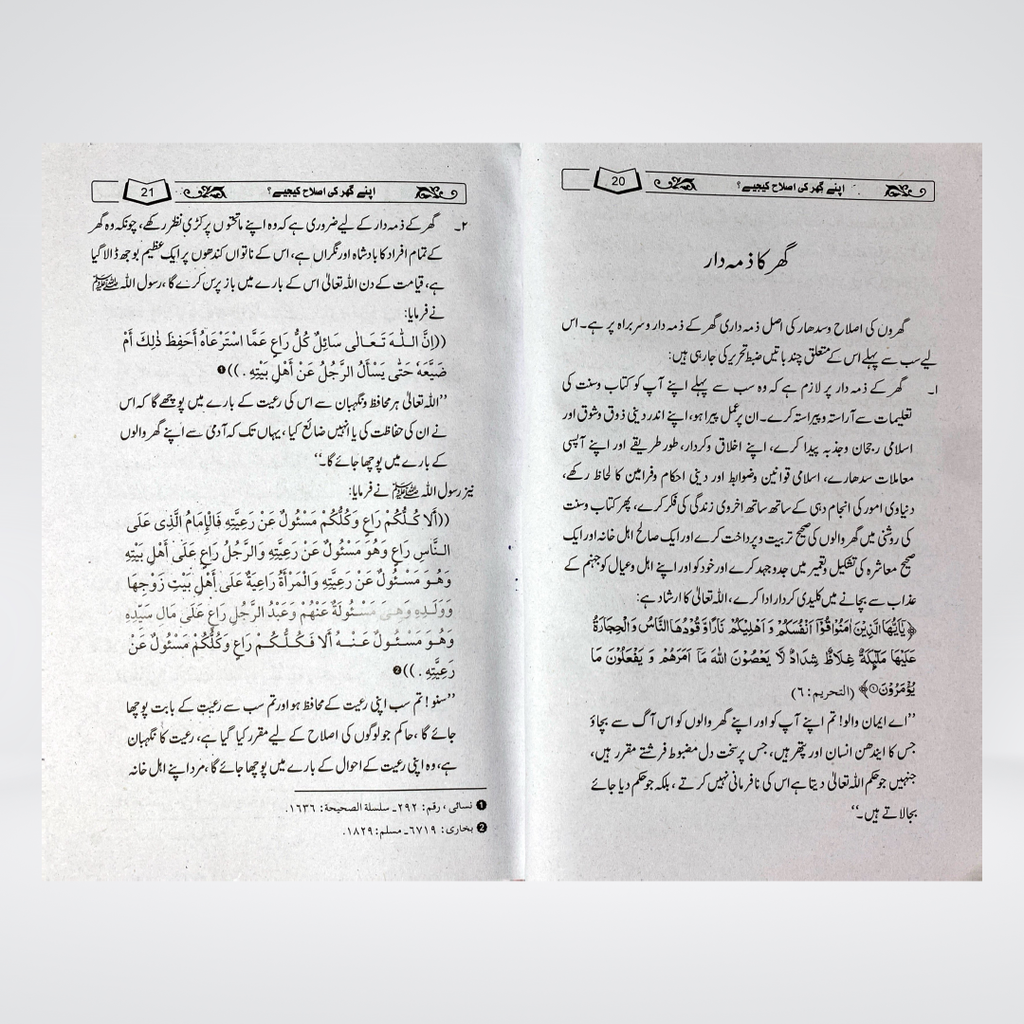 20 اپنے گھر کی اصلاح کیجیے؟
گھر کا ذمہ دار
گھروں کی اصلاح وسدھار کی اصل ذمہ داری گھر کے ذمہ دار وسربراہ پر ہے۔ اس
لیے سب سے پہلے اس کے متعلق چند باتیں ضبط تحریر کی جارہی ہیں:
۱۔ گھر کے ذمہ دار پر لازم ہے کہ وہ سب سے پہلے اپنے آپ کو کتاب وسنت کی
تعلیمات سے آراستہ وپیراستہ کرے۔ ان پر عمل پیرا ہو، اپنے اندر دینی ذوق وشوق اور
اسلامی رجحان وجذبہ پیدا کرے، اپنے اخلاق وکردار، طور طریقے اور اپنے آپسی
معاملات سدھارے، اسلامی قوانین وضوابط اور دینی احکام وفرامین کا لحاظ رکھے،
دنیاوی امور کی انجام دہی کے ساتھ ساتھ اخروی زندگی کی فکر کرے، پھر کتاب وسنت
کی روشنی میں گھر والوں کی صحیح تربیت وپرداخت کرے اور ایک صالح اہل خانہ اور ایک
صحیح معاشرہ کی تشکیل وتعمیر میں جدوجہد کرے اور خود کو اور اپنے اہل وعیال کو جہنم کے
عذاب سے بچانے میں کلیدی کردار ادا کرے، اللہ تعالیٰ کا ارشاد ہے:
﴿يٰٓاَيُّهَا الَّذِيْنَ اٰمَنُوْا قُوْٓا اَنْفُسَكُمْ وَ اَهْلِيْكُمْ نَارًا وَّ قُوْدُهَا النَّاسُ وَ الْحِجَارَةُ
عَلَيْهَا مَلٰٓىِٕكَةٌ غِلَاظٌ شِدَادٌ لَّا يَعْصُوْنَ اللّٰهَ مَآ اَمَرَهُمْ وَ يَفْعَلُوْنَ مَا
يُؤْمَرُوْنَ۝۶﴾ (التحريم: ٦)
’’اے ایمان والو! تم اپنے آپ کو اور اپنے گھر والوں کو اس آگ سے بچاؤ
جس کا ایندھن انسان اور پتھر ہیں، جس پر سخت دل مضبوط فرشتے مقرر ہیں،
جنہیں جو حکم اللہ تعالیٰ دیتا ہے اس کی نافرمانی نہیں کرتے، بلکہ جو حکم دیا جائے
بجالاتے ہیں۔‘‘
21 اپنے گھر کی اصلاح کیجیے؟
۲۔ گھر کے ذمہ دار کے لیے ضروری ہے کہ وہ اپنے ماتحتوں پر کڑی نظر رکھے، چونکہ وہ گھر
کے تمام افراد کا بادشاہ اور نگراں ہے، اس کے ناتواں کندھوں پر ایک عظیم بوجھ ڈالا گیا
ہے، قیامت کے دن اللہ تعالیٰ اس کے بارے میں باز پرس کرے گا، رسول اللہ ﷺ
نے فرمایا:
((إِنَّ اللّٰهَ تَعَالٰى سَائِلٌ كُلُّ رَاعٍ عَمَّا اسْتَرْعَاهُ أَحَفِظَ ذٰلِكَ أَمْ
ضَيَّعَهٗ حَتّٰى يَسْأَلَ الرَّجُلُ عَنْ أَهْلِ بَيْتِهِ.))❶
’’اللہ تعالیٰ ہر محافظ ونگہبان سے اس کی رعیت کے بارے میں پوچھے گا کہ اس
نے ان کی حفاظت کی یا انہیں ضائع کیا، یہاں تک کہ آدمی سے اپنے گھر والوں
کے بارے میں پوچھا جائے گا۔‘‘
نیز رسول اللہ ﷺ نے فرمایا:
((أَلَا كُلُّكُمْ رَاعٍ وَكُلُّكُمْ مَسْئُولٌ عَنْ رَعِيَّتِهِ فَالْإِمَامُ الَّذِى عَلَى
النَّاسِ رَاعٍ وَهُوَ مَسْئُولٌ عَنْ رَعِيَّتِهِ وَالرَّجُلُ رَاعٍ عَلٰى أَهْلِ بَيْتِهِ
وَهُوَ مَسْئُولٌ عَنْ رَعِيَّتِهِ وَالْمَرْأَةُ رَاعِيَةٌ عَلٰى أَهْلِ بَيْتِ زَوْجِهَا
وَوَلَدِهِ وَهِىَ مَسْئُولَةٌ عَنْهُمْ وَعَبْدُ الرَّجُلِ رَاعٍ عَلٰى مَالِ سَيِّدِهِ
وَهُوَ مَسْئُولٌ عَنْهُ أَلَا فَكُلُّكُمْ رَاعٍ وَكُلُّكُمْ مَسْئُولٌ عَنْ
رَعِيَّتِهِ.))❷
’’سنو! تم سب اپنی رعیت کے محافظ ہو اور تم سب سے رعیت کے بابت پوچھا
جائے گا، حاکم جو لوگوں کی اصلاح کے لیے مقرر کیا گیا ہے، رعیت کا نگہبان
ہے، وہ اپنی رعیت کے احوال کے بارے میں پوچھا جائے گا، مرد اپنے اہل خانہ
❶ نسائی، رقم: ۲۹۲۔ سلسلة الصحيحة: ١٦٣٦.
❷ بخاری: ٦٧١٩۔ مسلم: ١٨٢٩.